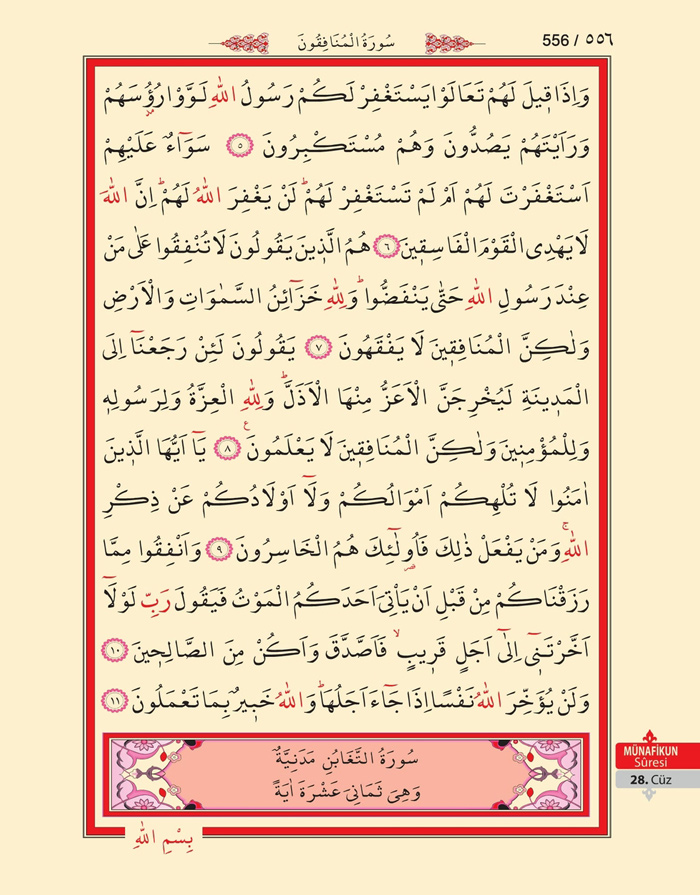 سُورَةُ الْمُنَافِقُونَ
556 / ٥٥٦
وَاِذَا ق۪يلَ لَهُمْ تَعَالَوْا يَسْتَغْفِرْ لَكُمْ رَسُولُ اللّٰهِ لَوَّوْا رُؤُ۫سَهُمْ
وَرَاَيْتَهُمْ يَصُدُّونَ وَهُمْ مُسْتَكْبِرُونَ ﴿٥﴾ سَوَٓاءٌ عَلَيْهِمْ
اَسْتَغْفَرْتَ لَهُمْ اَمْ لَمْ تَسْتَغْفِرْ لَهُمْۜ لَنْ يَغْفِرَ اللّٰهُ لَهُمْۜ اِنَّ اللّٰهَ
لَا يَهْدِي الْقَوْمَ الْفَاسِق۪ينَ ﴿٦﴾ هُمُ الَّذ۪ينَ يَقُولُونَ لَا تُنْفِقُوا عَلٰى مَنْ
عِنْدَ رَسُولِ اللّٰهِ حَتّٰى يَنْفَضُّواۜ وَلِلّٰهِ خَزَٓائِنُ السَّمٰوَاتِ وَالْاَرْضِ
وَلٰكِنَّ الْمُنَافِق۪ينَ لَا يَفْقَهُونَ ﴿٧﴾ يَقُولُونَ لَئِنْ رَجَعْنَٓا اِلَى
الْمَد۪ينَةِ لَيُخْرِجَنَّ الْاَعَزُّ مِنْهَا الْاَذَلَّۜ وَلِلّٰهِ الْعِزَّةُ وَلِرَسُولِه۪
وَلِلْمُؤْمِن۪ينَ وَلٰكِنَّ الْمُنَافِق۪ينَ لَا يَعْلَمُونَ۟ ﴿٨﴾ يَٓا اَيُّهَا الَّذ۪ينَ
اٰمَنُوا لَا تُلْهِكُمْ اَمْوَالُكُمْ وَلَٓا اَوْلَادُكُمْ عَنْ ذِكْرِ
اللّٰهِۚ وَمَنْ يَفْعَلْ ذٰلِكَ فَاُو۬لٰٓئِكَ هُمُ الْخَاسِرُونَ ﴿٩﴾ وَاَنْفِقُوا مِمَّا
رَزَقْنَاكُمْ مِنْ قَبْلِ اَنْ يَأْتِيَ اَحَدَكُمُ الْمَوْتُ فَيَقُولَ رَبِّ لَوْلَٓا
اَخَّرْتَن۪ٓي اِلٰٓى اَجَلٍ قَر۪يبٍۙ فَاَصَّدَّقَ وَاَكُنْ مِنَ الصَّالِح۪ينَ ﴿١٠﴾
وَلَنْ يُؤَخِّرَ اللّٰهُ نَفْسًا اِذَا جَٓاءَ اَجَلُهَاۜ وَاللّٰهُ خَب۪يرٌ بِمَا تَعْمَلُونَ ﴿١١﴾
سُورَةُ التَّغَابُنِ مَدَنِيَّةٌ
وَهِيَ ثَمَانِيَ عَشْرَةَ اٰيَةً
بِسْمِ اللّٰهِ
MÜNAFİKUN
Sûresi
28. Cüz